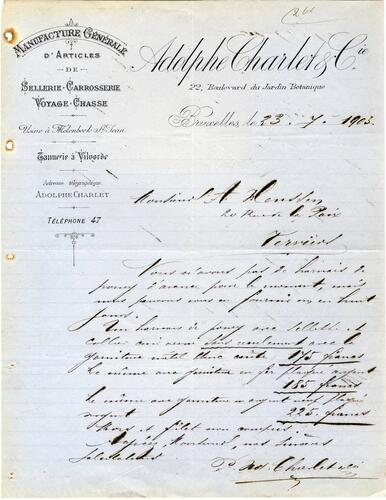 Manufacture Générale
D'Articles
de
Sellerie-Carrosserie
Voyage-Chasse
Usine à Molenbeek St Jean
Tannerie à Vilvorde
Adresse télégraphique
Adolphe Charlet
Téléphone 47
Adolphe Charlet & Cie
22, Boulevard du Jardin Botanique
Bruxelles, le 23 - 7 - 1903.
Monsieur A
20 Rue de la Paix
Verviers
Nous n'avons pas de harnais de
poney d'avance pour le moment, mais
nous pouvons vous en fournir en huit
jours.
Un harnais de poney avec sellette et
collier cuir verni avec la
garniture coûte 175 francs
Le même avec garniture argent
185 francs
Le même avec garniture argent
argent 225. francs
Mors et filet non compris.
Agréez, Monsieur, nos sincères
salutations
P. Ad. Charlet & Cie